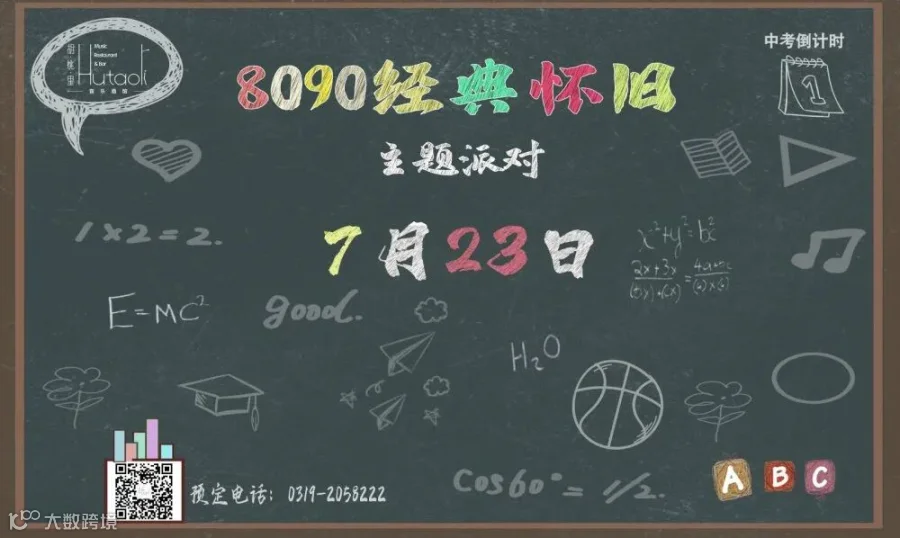 胡桃里
Music
Restaurant
& Bar
Hutaoli
音乐酒馆
中考倒计时
1
8090经典怀旧
主题派对
7月23日
1×2=2.
x²+y²=bc²
2x+3x
E=MC²
good.
H₂O
Cos60°=1/2.
A B C
预定电话：0319-2058222
大数跨境